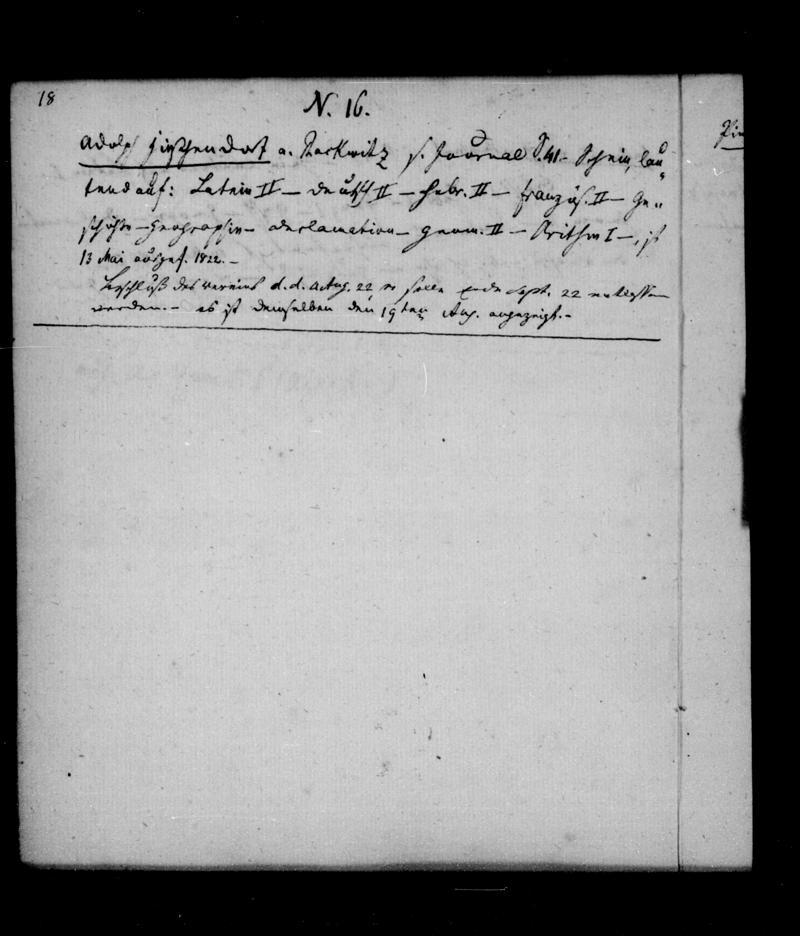 18
N. 16.
Adolph Hirschendorf a. Raschwitz s. Journal S. 41. Schein, lau„
tend auf: Latein II – deutsch II – Hebr. II – Französ. II – Ge„
schichte – Geographie – declamation – Geom. II – Arithm I –, ist
13 Mai ausgef. 1822. –
Beschluß des Vereins d. d. Aug. 22, er solle Ende Sept. 22 entlassen
werden. – es ist demselben den 19ten Aug. angezeigt. –